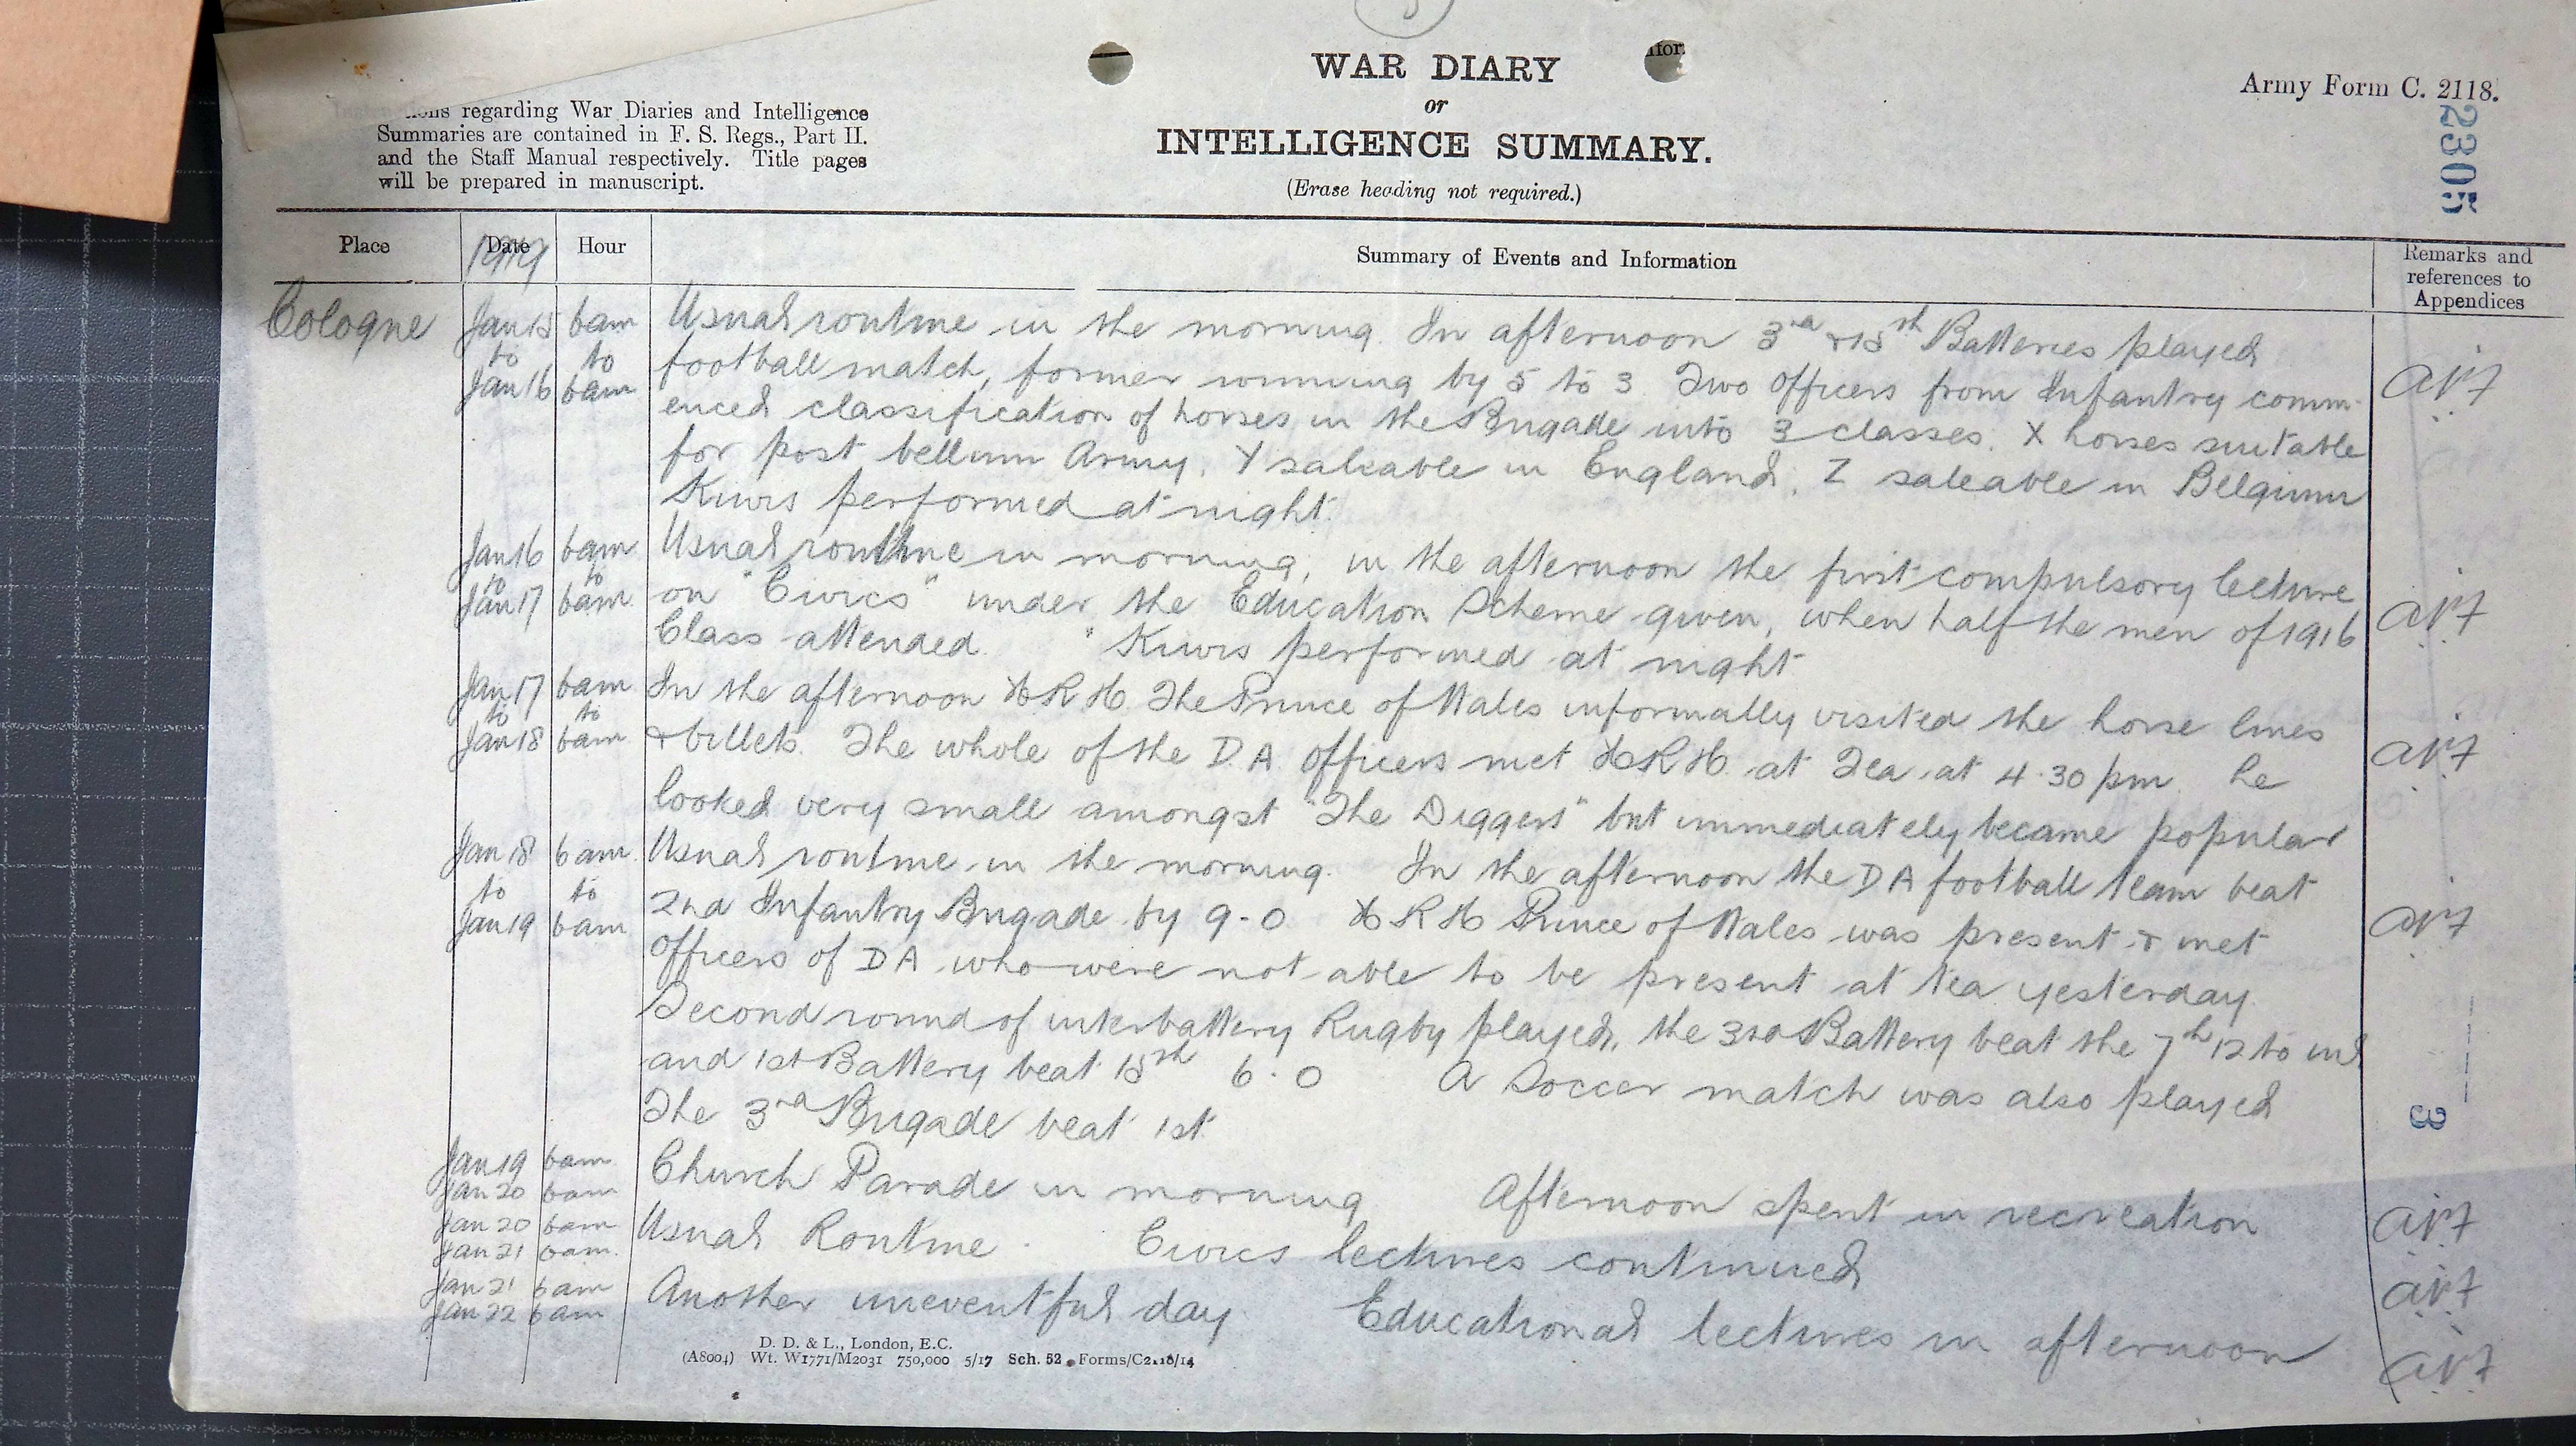 WAR DIARY
or
INTELLIGENCE SUMMARY.
(Erase heading not required.)
Army Form C. 2118.
2305
regarding War Diaries and Intelligence
Summaries are contained in F. S. Regs., Part II.
and the Staff Manual respectively. Title pages
will be prepared in manuscript.
Place
Date
1919
Hour
Summary of Events and Information
Remarks and
references to
Appendices
Cologne
Jan 15 6am Usual routine in the morning. In afternoon 3rd & 15th Batteries played
to to football match, former winning by 5 to 3. Two Officers from Infantry comm-
Jan 16 6am enced classification of horses in the Brigade into 3 classes. X horses suitable
for post bellum Army, Y saleable in England, Z saleable in Belgium
Kiwis performed at night.
Jan 16 6am Usual routine in morning, in the afternoon the first compulsory lecture
to to on "Civics" under the Education Scheme given, when half the men of 1916
Jan 17 6am Class attended. "Kiwis performed at night
Jan 17 6am In the afternoon H.R.H. The Prince of Wales informally visited the horse lines
to to & billets. The whole of the D.A. Officers met H.R.H. at Tea at 4.30 pm. he
Jan 18 6am looked very small amongst "The Diggers" but immediately became popular
Jan 18 6am Usual routine in the morning. In the afternoon the DA football team beat
to to 2nd Infantry Brigade by 9-0 H R H Prince of Wales was present & met
Jan 19 6am Officers of DA who were not able to be present at tea yesterday.
Second round of interbattery Rugby played, the 3rd Battery beat the 7th 12 to nil
and 1st Battery beat 15th 6-0 A Soccer match was also played
The 3rd Brigade beat 1st.
Jan 19 6am Church Parade in morning Afternoon spent in recreation
Jan 20 6am
Jan 20 6am Usual Routine. Civics lectures continued
Jan 21 6am.
Jan 21 6am Another uneventful day Educational lectures in afternoon
Jan 22 6am
3
D. D. & L., London, E.C.
(A8004) Wt. W1771/M2031 750,000 5/17 Sch. 52 Forms/C2118/14